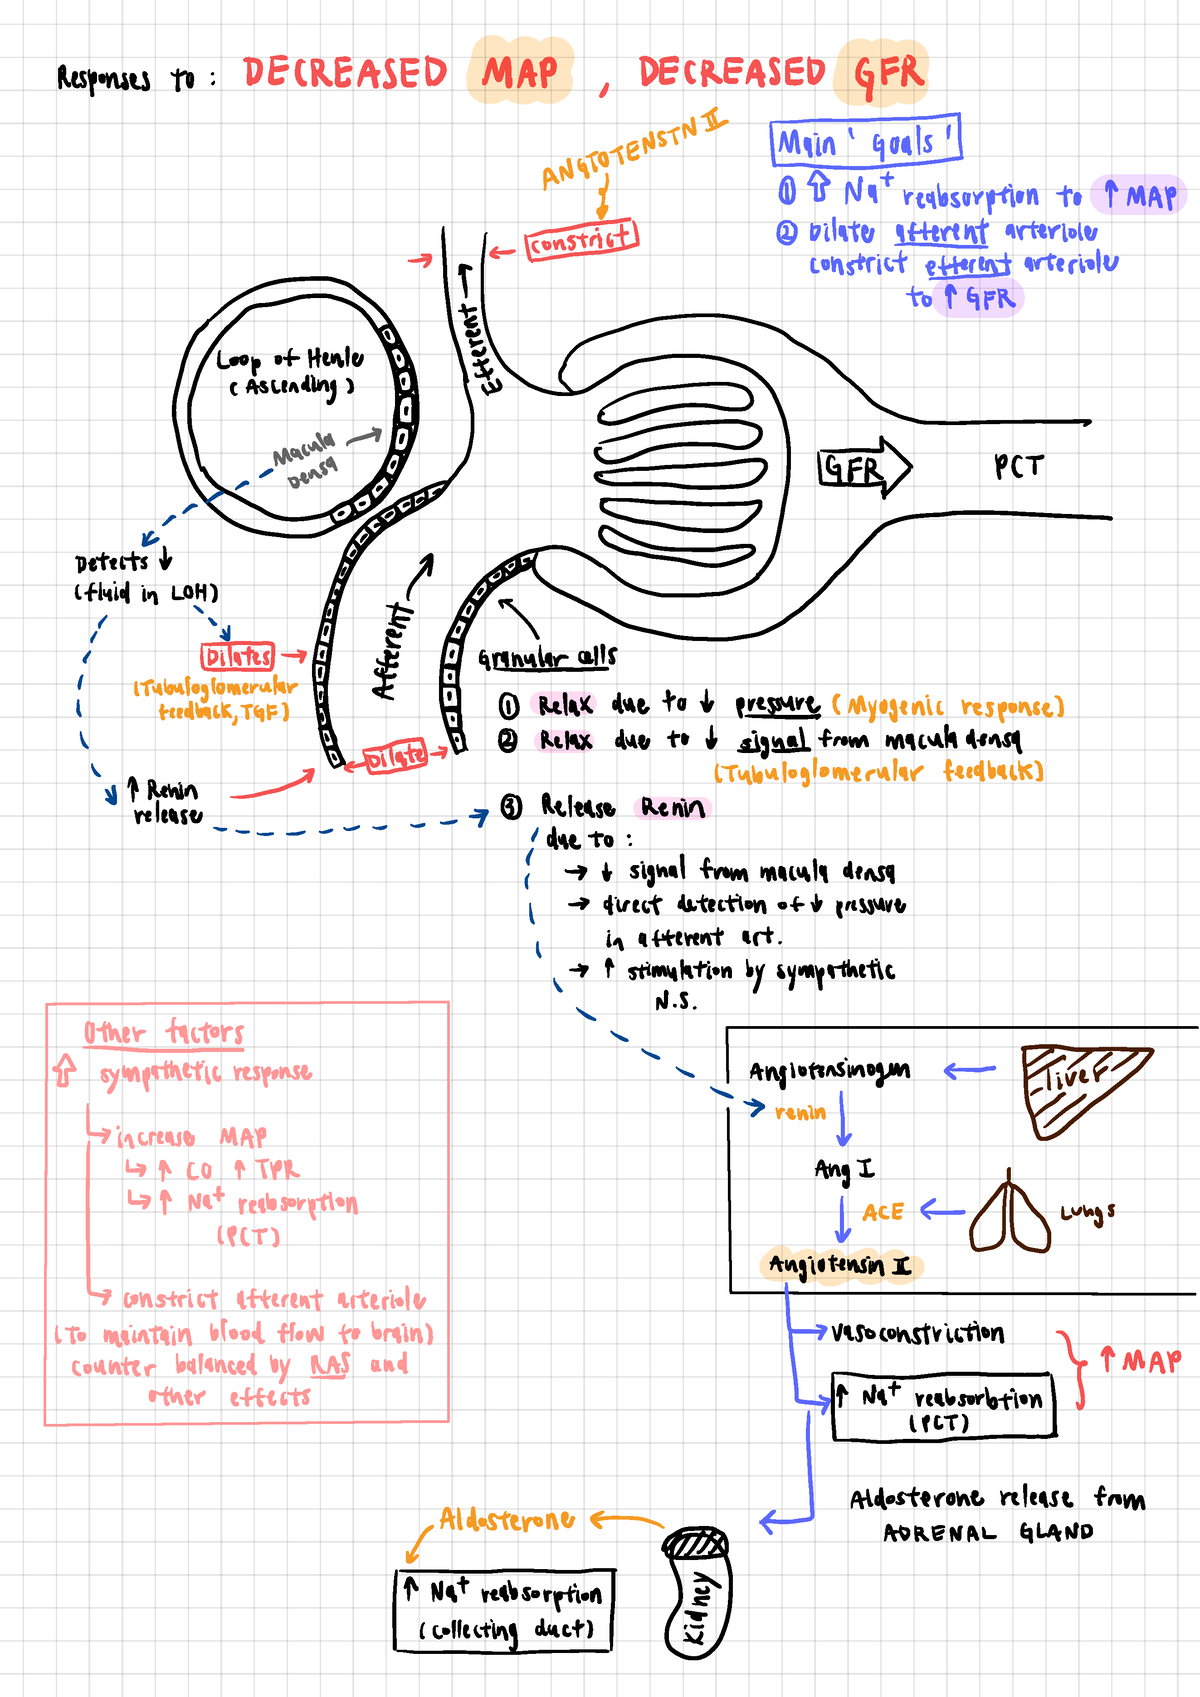 Responses to : DECREASED MAP , DECREASED GFR
ANGIOTENSIN II
constrict
Main 'Goals'
① ⇧ Na+ reabsorption to ↑ MAP
② Dilate afferent arteriole
constrict efferent arteriole
to ↑ GFR
Efferent →
Loop of Henle
(Ascending)
Macula
Densa
GFR
PCT
Detects ↓
(fluid in LOH)
Dilates
(Tubuloglomerular
feedback, TGF)
Afferent
Dilate
↑ Renin
release
Granular cells
① Relax due to ↓ pressure (Myogenic response)
② Relax due to ↓ signal from macula densa
(Tubuloglomerular feedback)
③ Release Renin
due to :
→ ↓ signal from macula densa
→ direct detection of ↓ pressure
in afferent art.
→ ↑ stimulation by sympathetic
N.S.
Other factors
⇧ sympathetic response
↳ increase MAP
↳ ↑ CO ↑ TPR
↳ ↑ Na+ reabsorption
(PCT)
↳ constrict afferent arteriole
(To maintain blood flow to brain)
counter balanced by RAS and
other effects
Angiotensinogen
liver
renin
Ang I
ACE
Lungs
Angiotensin II
vasoconstriction
↑ MAP
↑ Na+ reabsorbtion
(PCT)
Aldosterone release from
ADRENAL GLAND
Aldosterone
Kidney
↑ Na+ reabsorption
(collecting duct)